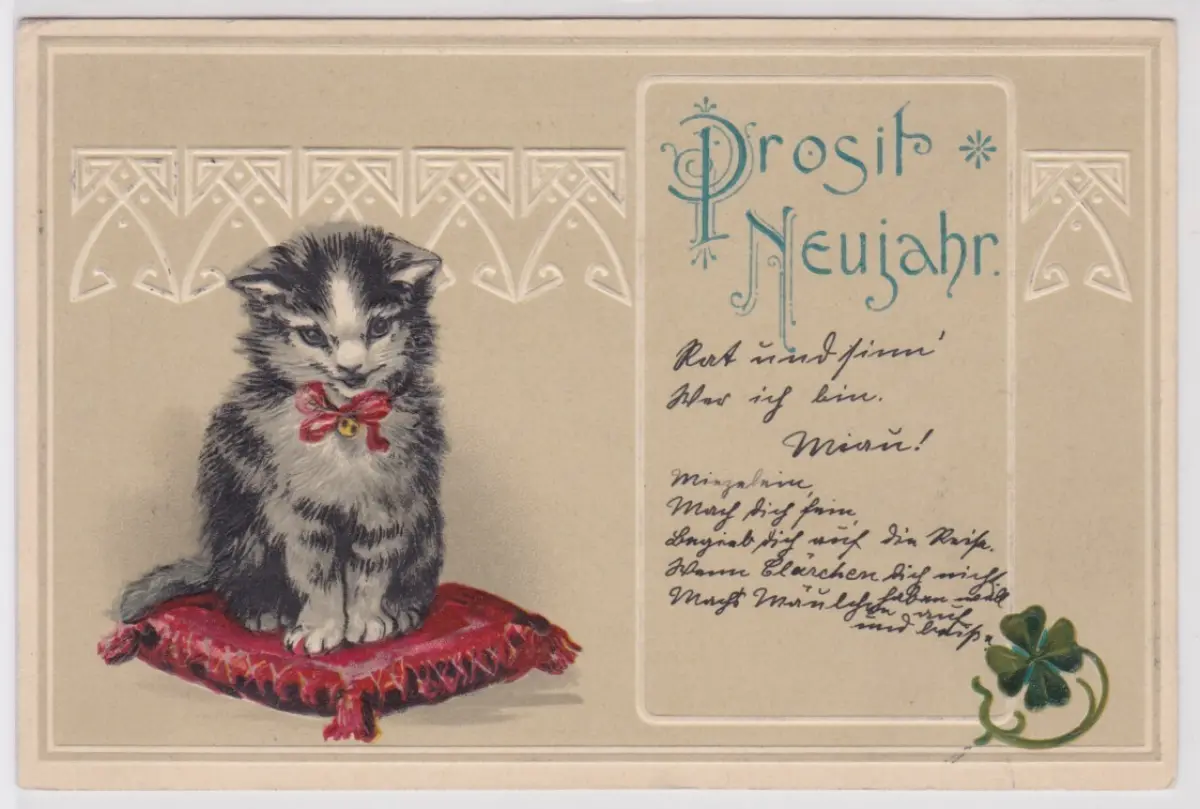 Prosit
Neujahr.
Rat und sinn'
Wer ich bin.
Miau!
Miezelein,
Mach dich fein,
Begieb dich auf die Reise.
Wenn Clärchen dich nicht
haben will
Machs Mäulchen auf
und beiße.